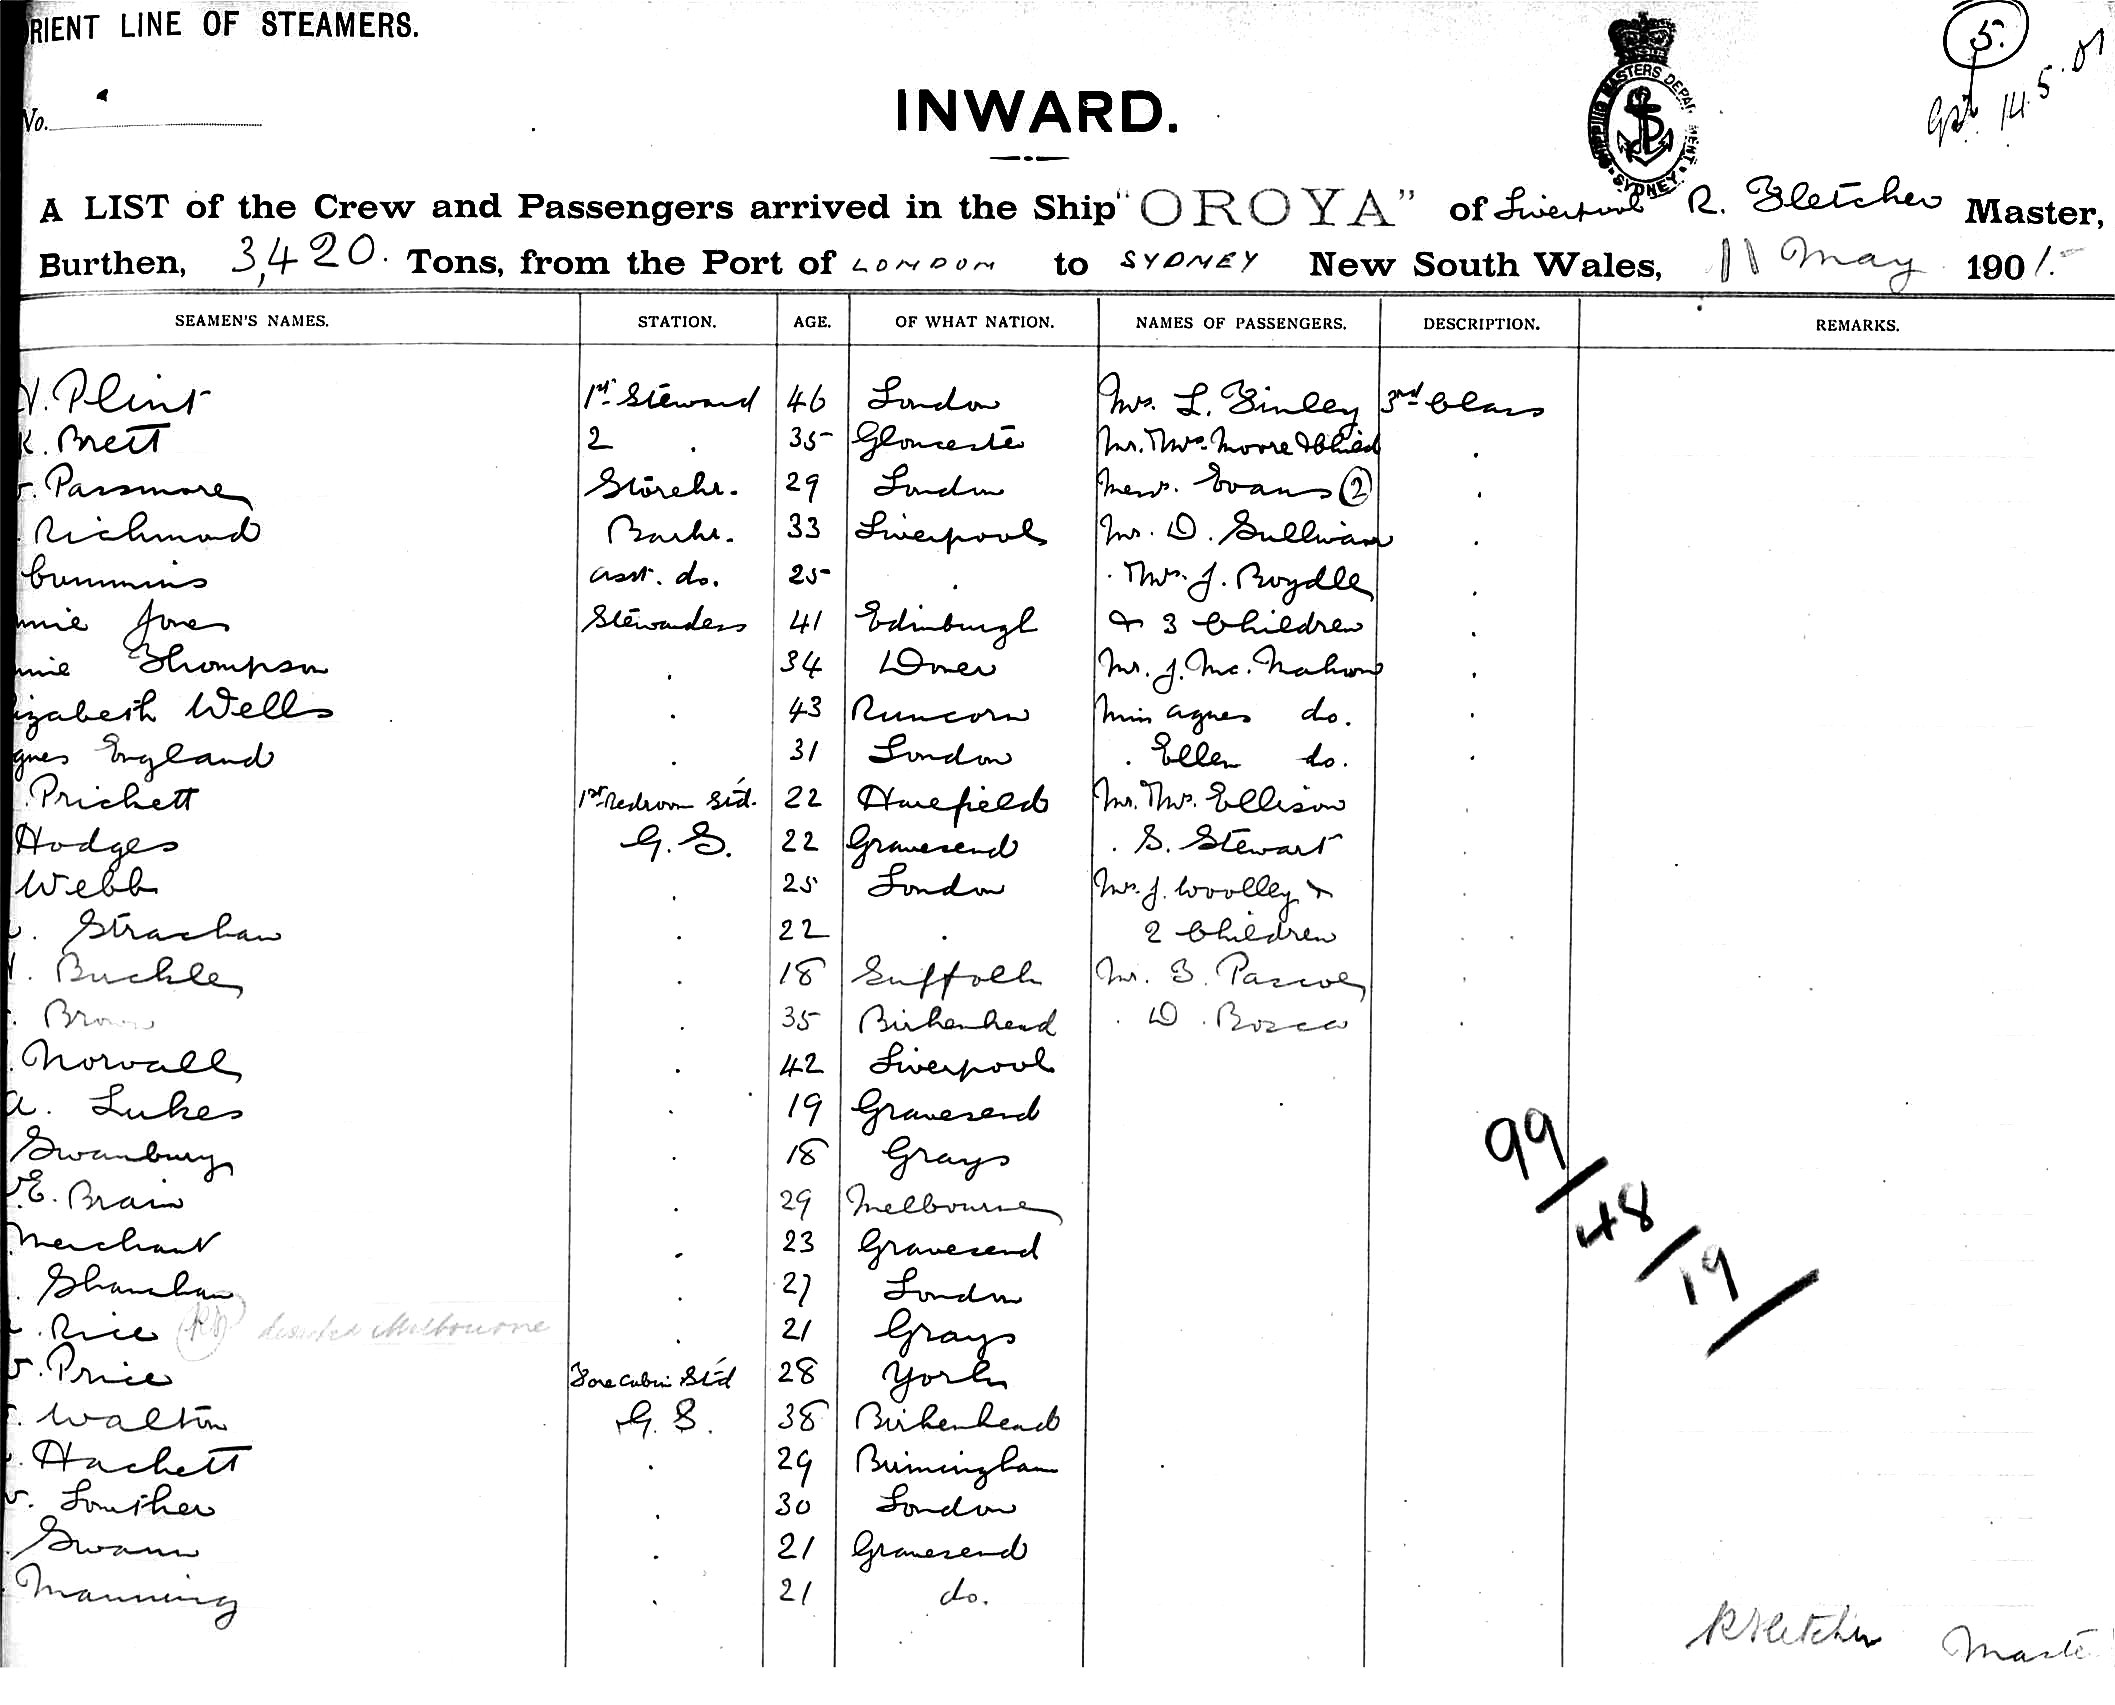 RIENT LINE OF STEAMERS.
5.
14.5.01
No.
INWARD.
SHIPPING MASTERS DEPARTMENT SYDNEY
A LIST of the Crew and Passengers arrived in the Ship "OROYA" of Liverpool R. Fletcher Master,
Burthen, 3,420. Tons, from the Port of LONDON to SYDNEY New South Wales, 11 May 1901.
SEAMEN'S NAMES. STATION. AGE. OF WHAT NATION. NAMES OF PASSENGERS. DESCRIPTION. REMARKS.
Plint 1st Steward 46 London Mrs. L. Finley 3rd Class
K. Brett 2 . 35 Gloucester Mr. Mrs. Moore & Child .
Passmore Storekr. 29 London Messrs. Evans (2) .
Richmond Barkr. 33 Liverpool Mr. D. Sullivan .
Cummins Asst. do. 25 . . Mrs. J. Boydle .
nnie Jones Stewardess 41 Edinburgh & 3 Children .
nnie Thompson . 34 Dover Mr. J. Mc. Mahon .
izabeth Wells . 43 Runcorn Miss Agnes do. .
gnes England . 31 London . Ellen do. .
Prickett 1st Bedroom Std. 22 Harefield Mr. Mrs. Ellison .
Hodges G.S. 22 Gravesend . S. Stewart .
Webb . 25 London Mrs. J. Woolley &
Strachan . 22 . 2 Children .
Buckle . 18 Suffolk Mr. F. Pascoe .
Brown . 35 Birkenhead . D. Bosca .
Norvall . 42 Liverpool
A. Lukes . 19 Gravesend
Swanbury . 18 Grays
E. Brain . 29 Melbourne
Merchant . 23 Gravesend
Shanahan . 27 London
Rice deserted Melbourne . 21 Grays
Price Fore Cabin Std 28 York
Walton G.S. 38 Birkenhead
Hackett . 29 Birmingham
Louther . 30 London
Swann . 21 Gravesend
Manning . 21 do.
99/48/19/
R Fletcher Maste